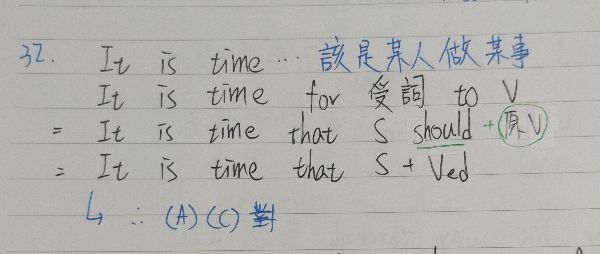 32. It is time … 該是某人做某事
It is time for 受詞 to V
= It is time that S should + 原V
= It is time that S + Ved
↳ ∴ (A)(C)對